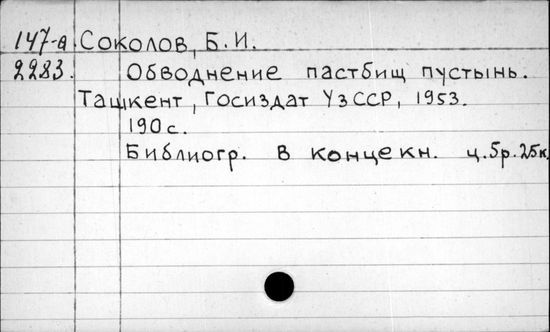 147-а Соколов, Б. И.
2283. Обводнение пастбищ пустынь.
Ташкент, Госиздат УзССР, 1953.
190 с.
Библиогр. в конце кн. ц. 5р. 25к.